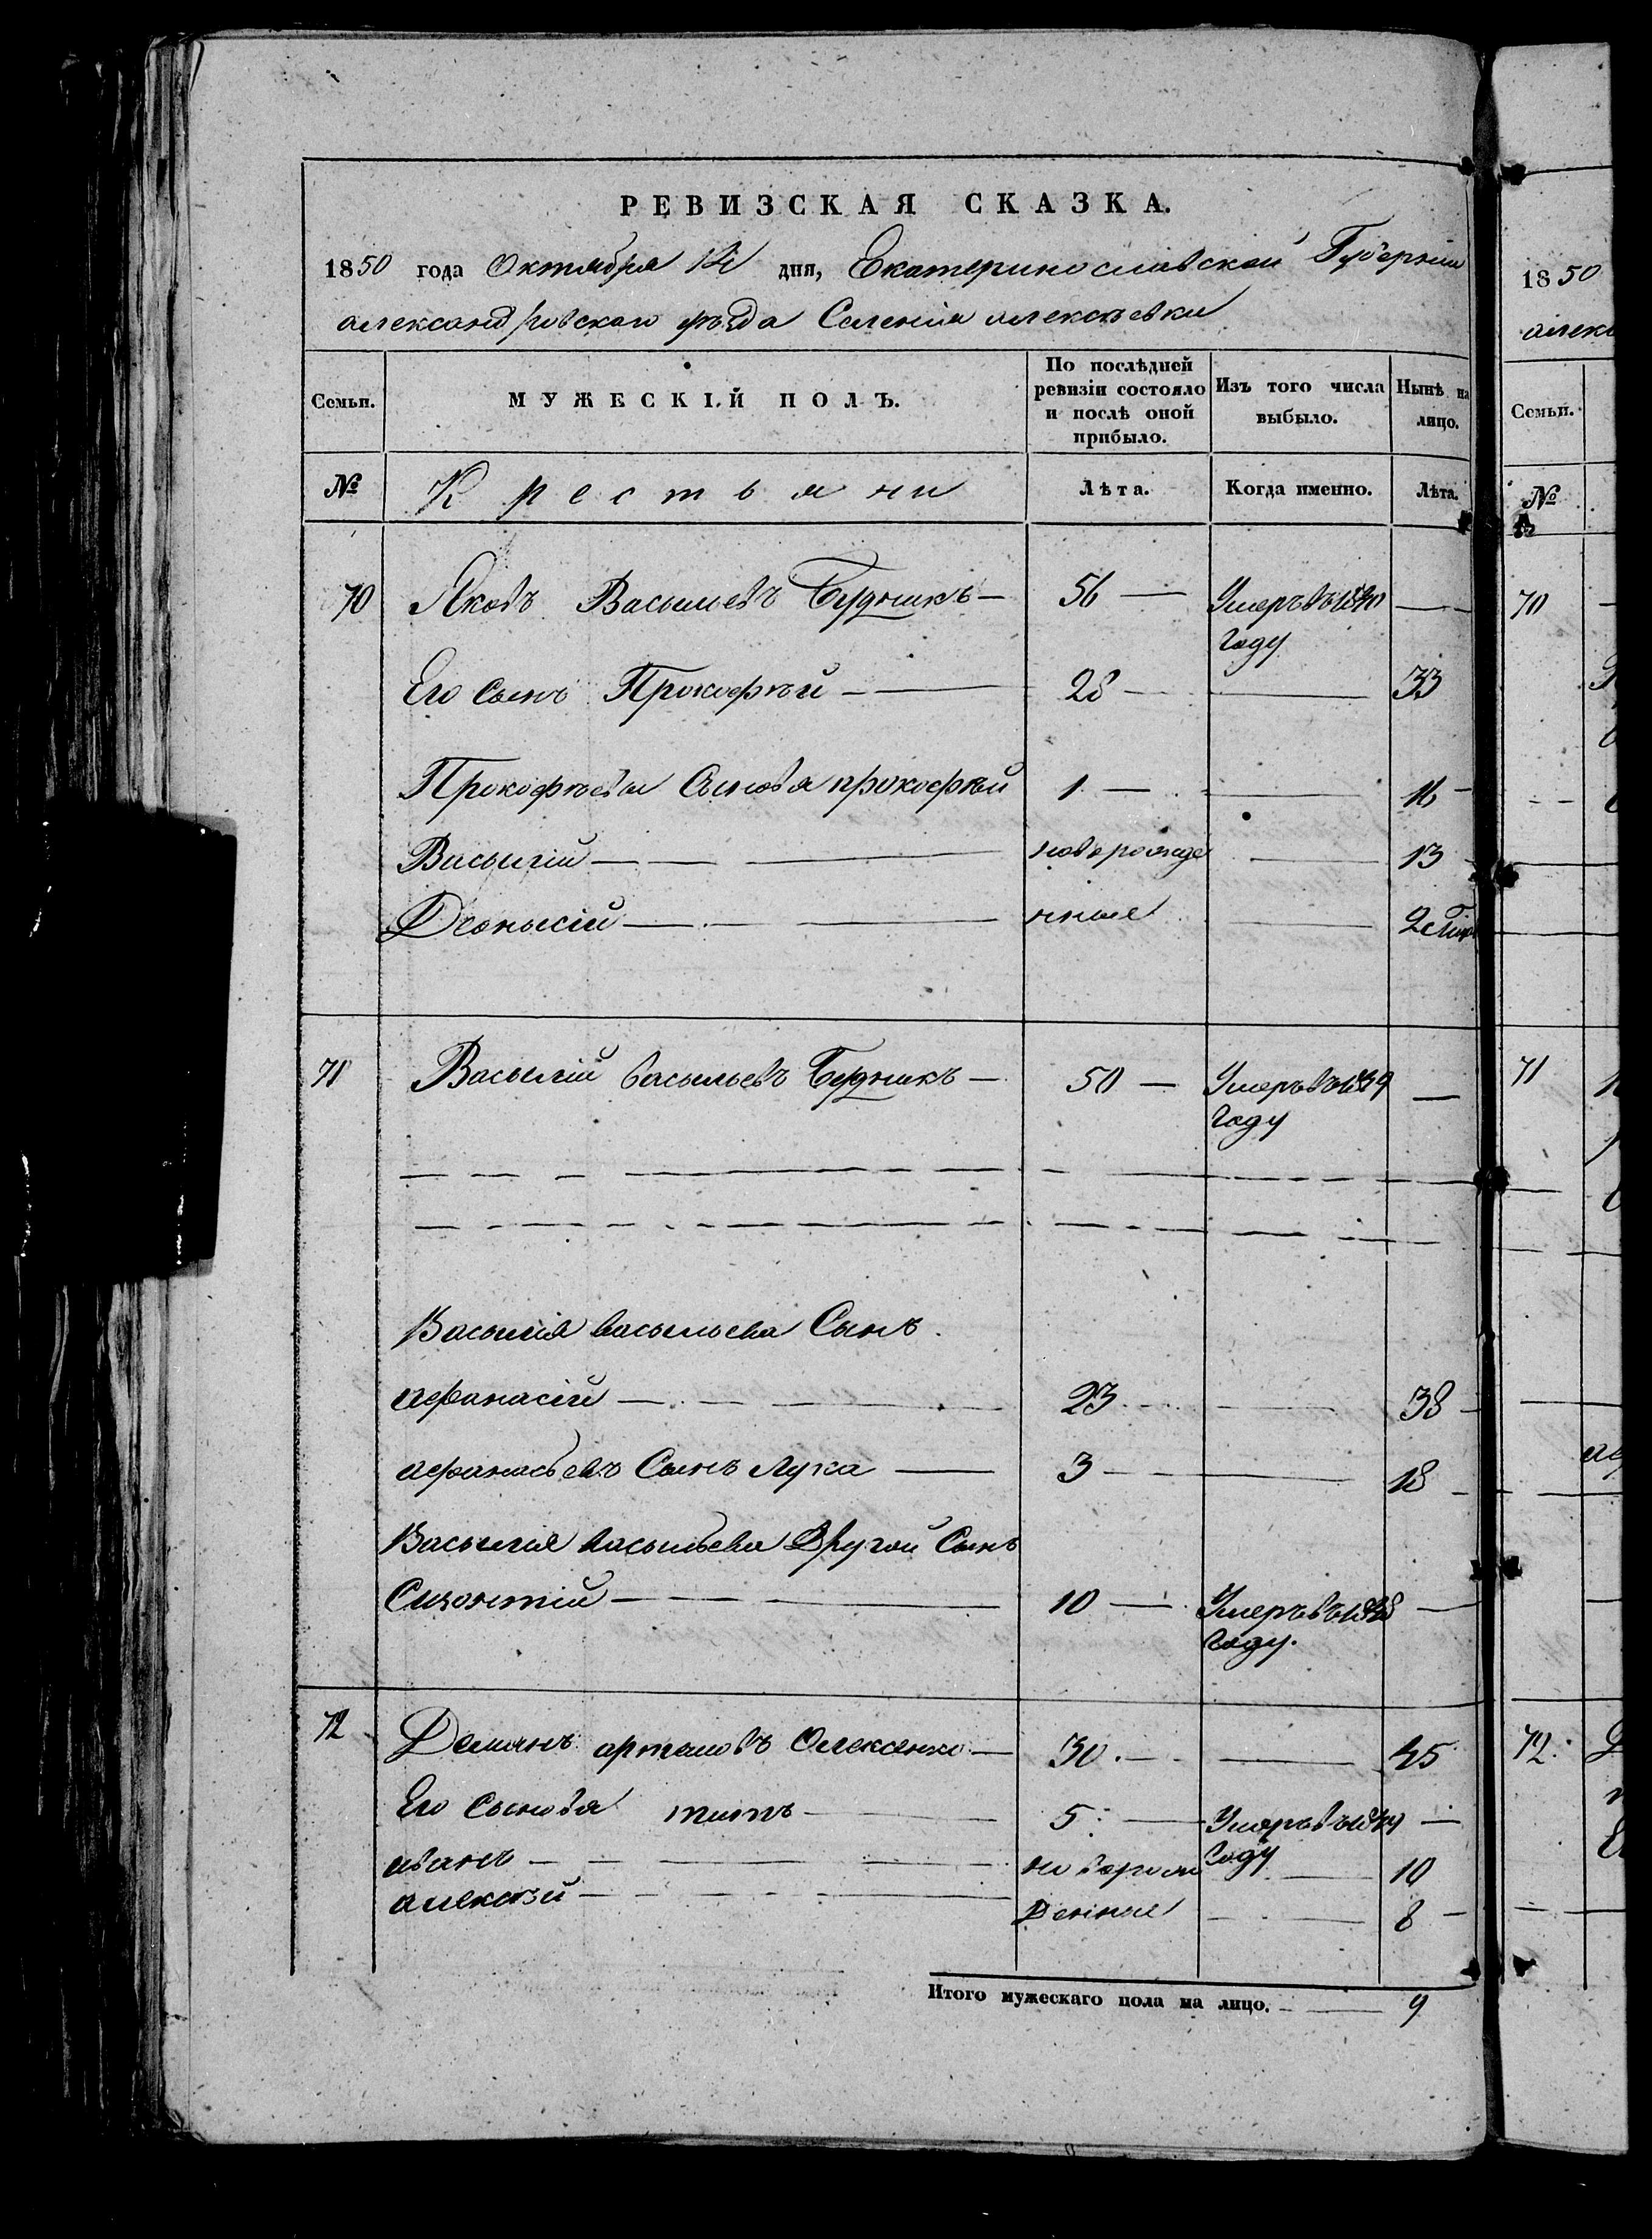 РЕВИЗСКАЯ СКАЗКА.
1850 года Октября 14 дня, Екатеринославской Губерніи
александровскаго уѣзда Селенія алексѣевки
Семьи. МУЖЕСКІЙ ПОЛЪ. По послѣдней ревизіи состояло и послѣ оной прибыло. Изъ того числа выбыло. Нынѣ на лицо.
№ Крестьяни Лѣта. Когда именно. Лѣта.
70 Яковъ Васильевъ Будникъ — 56 — Умеръ въ 1840 —
году
Его Сынъ Прокофѣй — 28 — — 33
Прокофѣевы Сыновя прокофѣй 1 — — 16
Васылій — новорожде — 13
Деонысій — нные — 2
71 Васылій васыльевъ Будникъ — 50 — Умеръ въ 1839 —
году
Васылія васыльева Сынъ.
афанасій — 23 — — 38
афанасьевъ Сынъ лука — 3 — — 18
Васылія васыльева Другой Сынъ
Сизонтій — 10 — Умеръ въ 1838 —
году.
72 Демянъ артамовъ Олексенко — 30 — — 45
Его Сыновя титъ — 5 — Умеръ въ 1844 —
году
иванъ — новорож — 10
алексѣй — денные — 8
Итого мужескаго пола на лицо. — 9
1850
алекс
Семьи.
№
70
71
72.